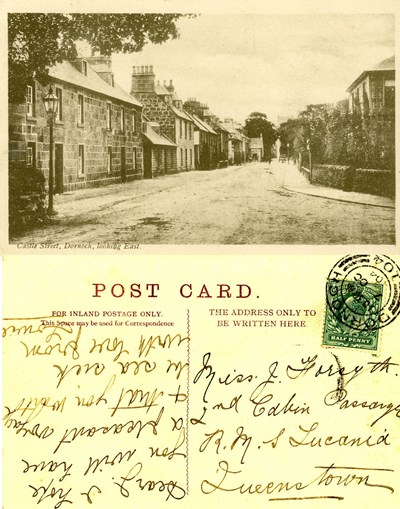 Castle Street, Dornoch, looking East.
POST CARD.
FOR INLAND POSTAGE ONLY.
This Space may be used for Correspondence
THE ADDRESS ONLY TO
BE WRITTEN HERE.
DORNOCH
HALF PENNY
Miss. J. Forsyth.
2nd Cabin Passenger
R.M.S Lucania
Queenstown
Dear J. I hope
you will have
a pleasant voyage
& that you
be sea sick
with love from